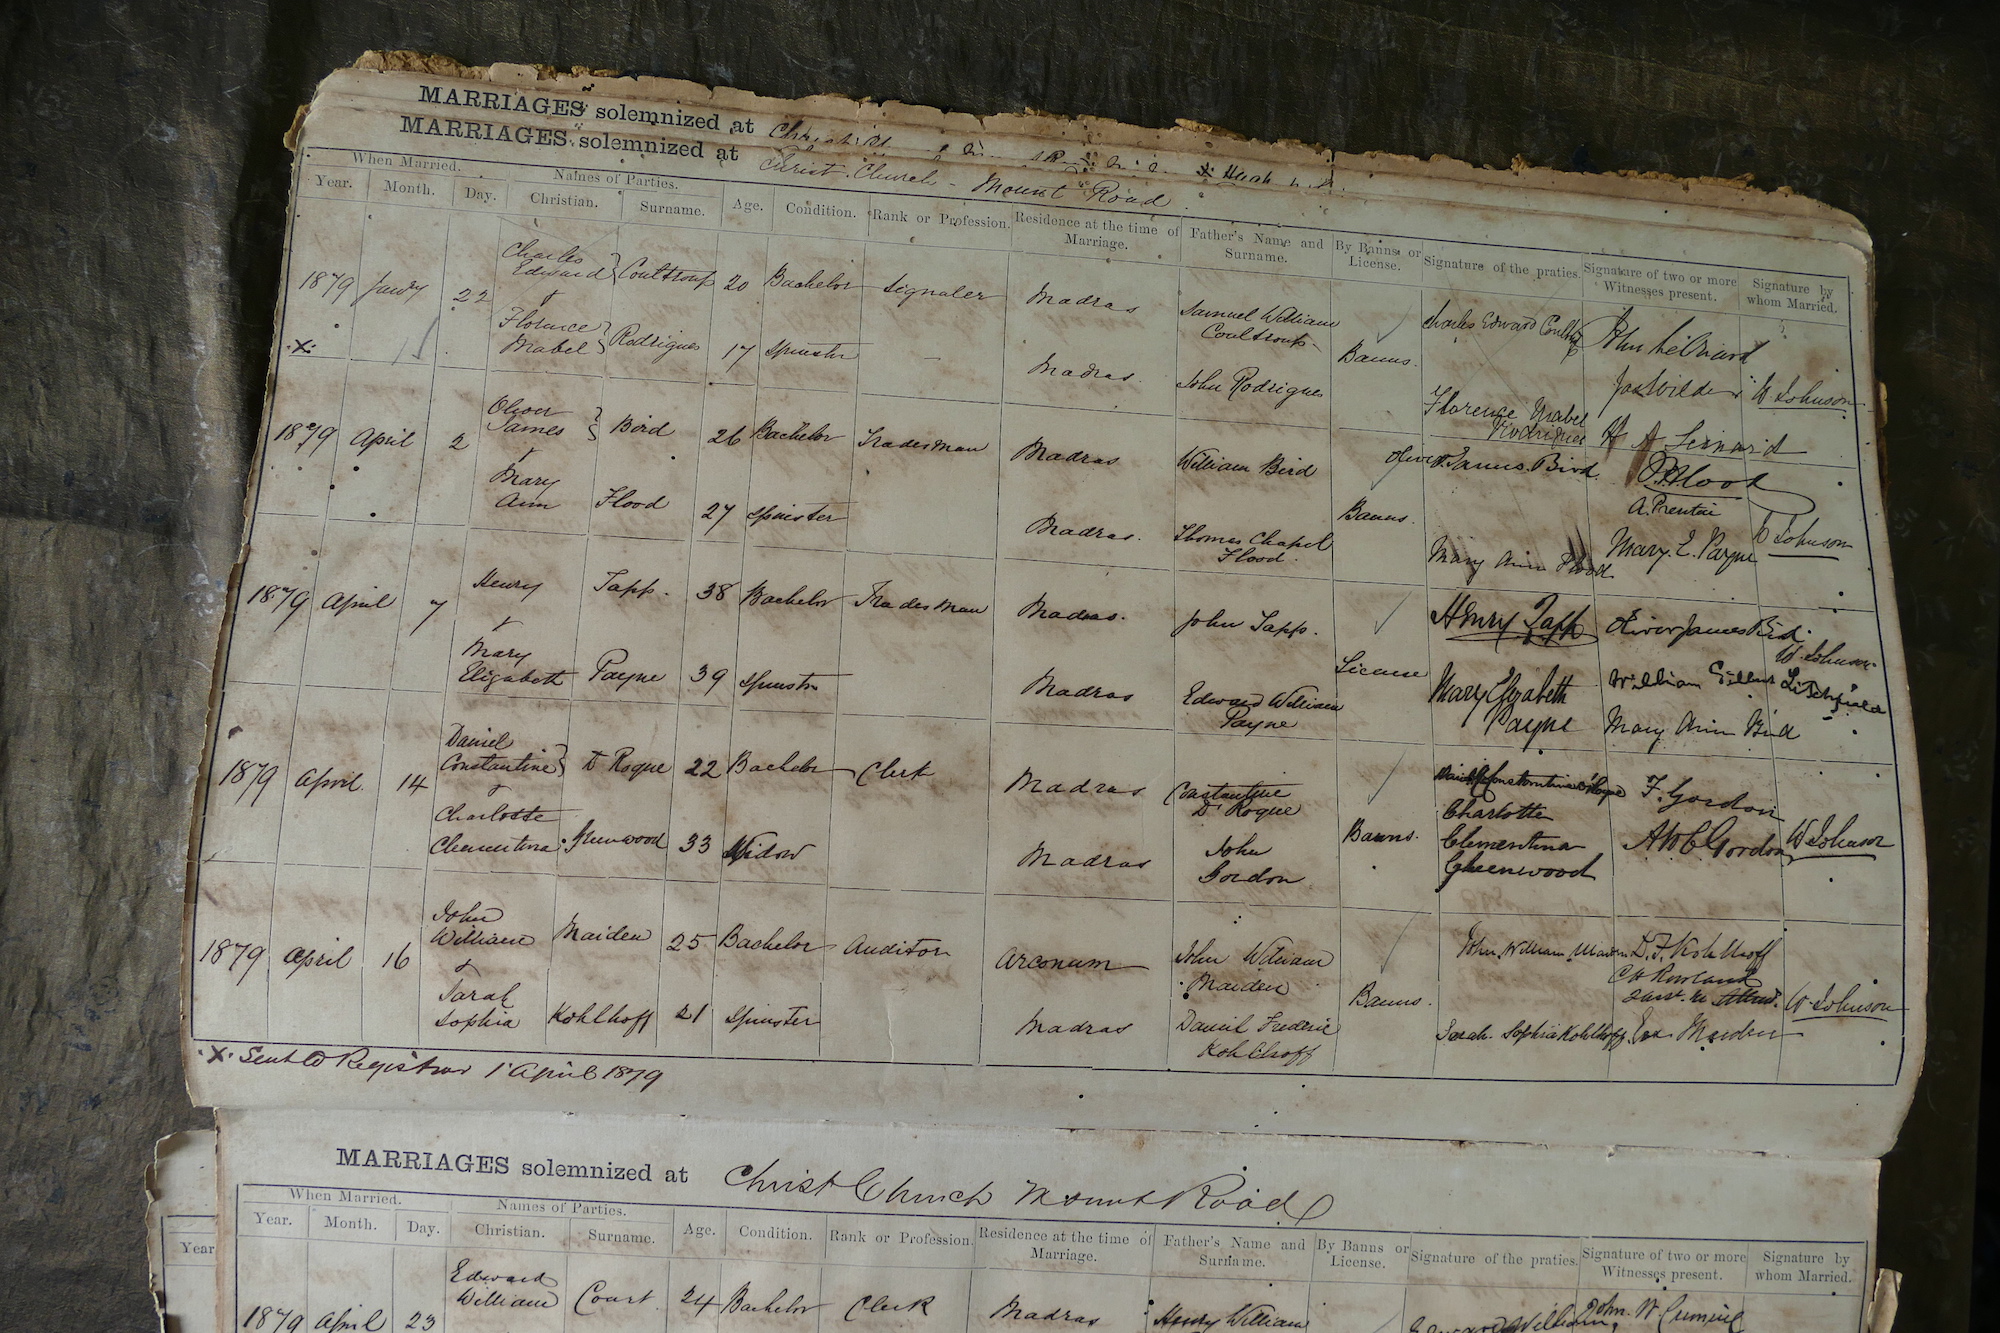 MARRIAGES solemnized at
MARRIAGES solemnized at Christ Church - Mount Road
When Married. Names of Parties.
Year. Month. Day. Christian. Surname. Age. Condition. Rank or Profession. Residence at the time of Marriage. Father's Name and Surname. By Banns or License. Signature of the praties. Signature of two or more Witnesses present. Signature by whom Married.
1879 Janry 22 Charles Edward Coultroup 20 Bachelor Signaler Madras Samuel William Coultroup Charles Edward
&
X Florence Mabel Rodrigues 17 Spinster - Madras. John Rodrigues Banns. Florence Mabel Rodrigues W. Johnson
1879 April 2 Oliver James Bird 26 Bachelor Tradesman Madras William Bird Oliver James Bird
&
Mary Ann Flood 27 Spinster Madras. Thomas Chapel Flood. Banns. Mary Ann Flood Mary. E. Payne W Johnson
1879 April 7 Henry Tapp. 38 Bachelor Tradesman Madras. John Tapp. Henry Tapp Oliver James Bird. W. Johnson
&
Mary Elizabeth Payne 39 Spinster Madras Edward William Payne License Mary Elizabeth Payne William Mary Ann Bird
1879 April 14 Daniel Constantine D'Roque 22 Bachelor Clerk Madras Constantine D'Roque F. Gordon
&
Charlotte Clementina Greenwood 33 Widow Madras John Gordon Banns. Charlotte Clementina Greenwood Gordon W Johnson
1879 April 16 John William Maiden 25 Bachelor Auditor Arconum John William Maiden John William Maiden D. F. Kohlhoff
&
Sarah Sophia Kohlhoff 21 Spinster Madras Daniel Frederic Kohlhoff Banns. Sarah Sophia Kohlhoff Maiden W. Johnson
X Sent to Registrar 1 April 1879
MARRIAGES solemnized at Christ Church Mount Road
When Married. Names of Parties.
Year Year. Month. Day. Christian. Surname. Age. Condition. Rank or Profession. Residence at the time of Marriage. Father's Name and Surname. By Banns or License. Signature of the praties. Signature of two or more Witnesses present. Signature by whom Married.
1879 April 23 Edward William Court 24 Bachelor Clerk Madras Henry William Edward William John. W.